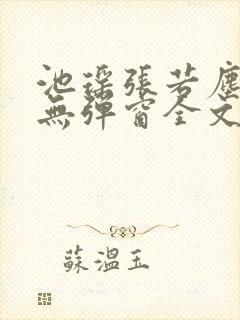 池瑤張若塵
無彈窗全文
蘇溫玉